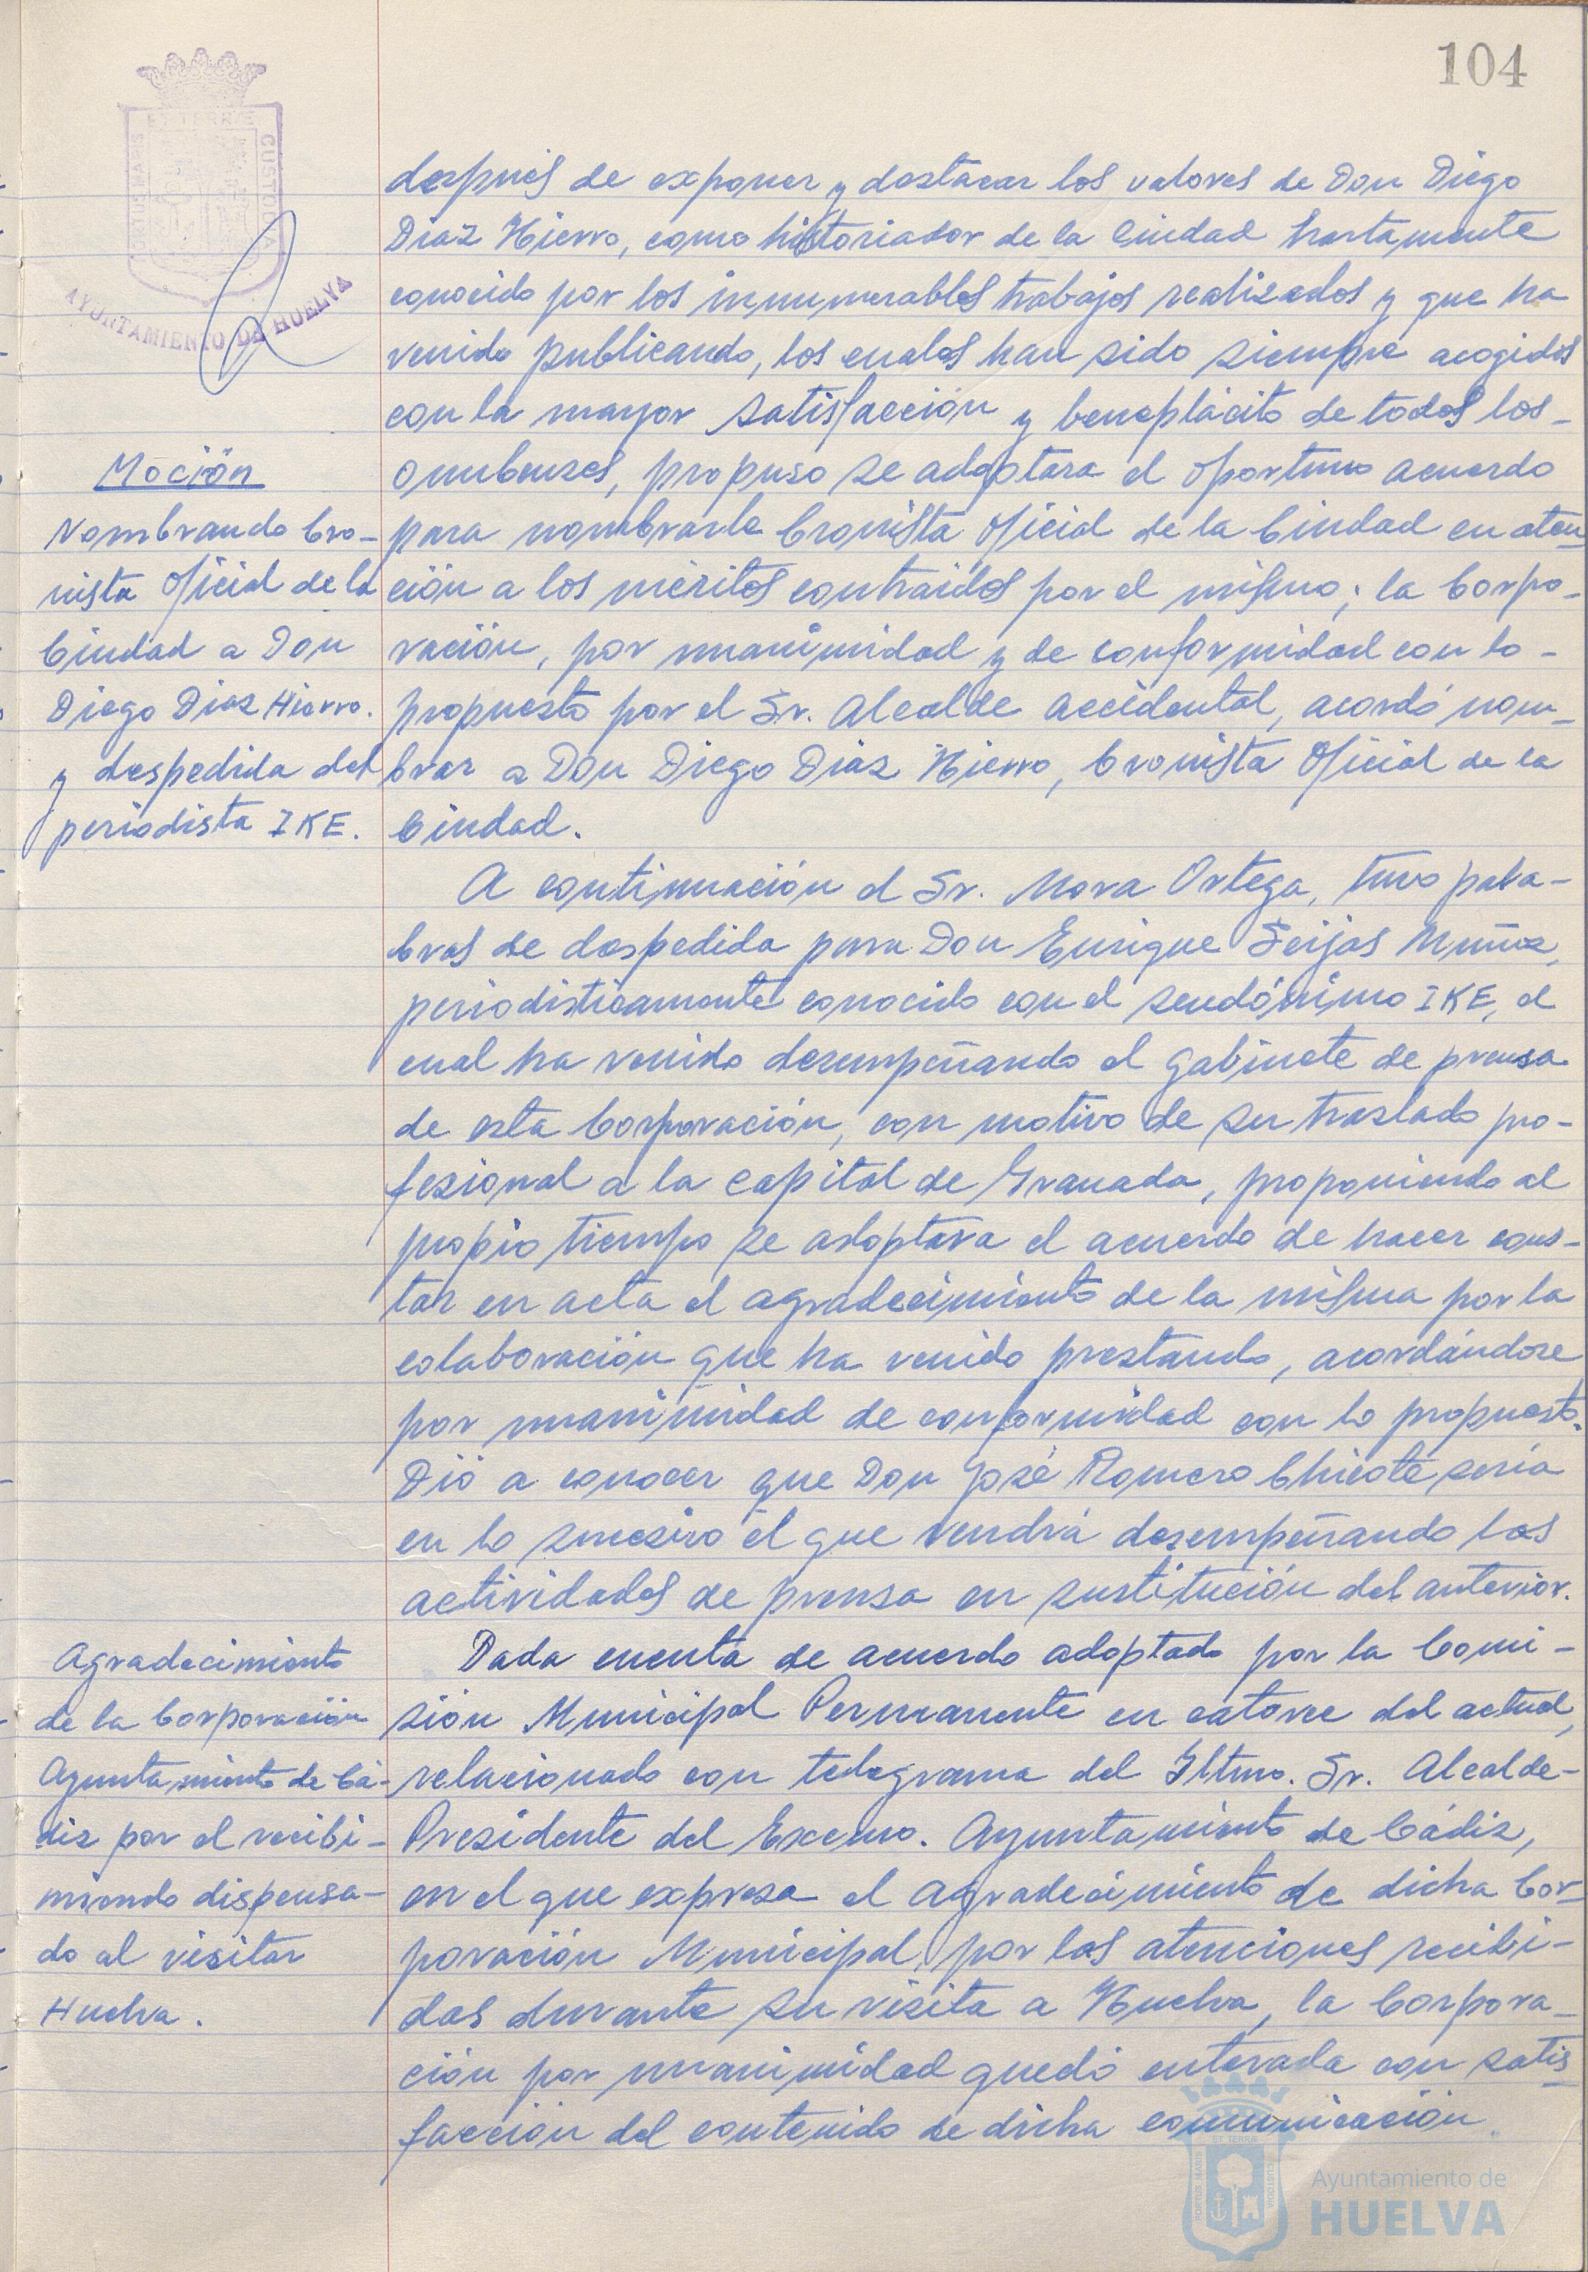 104
PORTUS MARIS
ET TERRÆ
CUSTODIA
AYUNTAMIENTO DE HUELVA
después de exponer y destacar los valores de Don Diego
Diaz Hierro, como historiador de la Ciudad hartamente
conocido por los innumerables trabajos realizados y que ha
venido publicando, los cuales han sido siempre acogidos
con la mayor satisfacción y beneplácito de todos los-
onubenses, propuso se adoptara el oportuno acuerdo
para nombrarle Cronista Oficial de la Ciudad en aten
ción a los méritos contraídos por el mismo; la Corpo-
ración, por unanimidad y de conformidad con lo-
propuesto por el Sr. Alcalde accidental, acordó nom-
brar a Don Diego Diaz Hierro, Cronista Oficial de la
Ciudad.
Moción
Nombrando Cro-
nista Oficial de la
Ciudad a Don
Diego Diaz Hierro.
y despedida del
periodista IKE.
A continuación el Sr. Mora Ortega, tuvo pala-
bras de despedida para Don Enrique Seijas Muñoz,
periodisticamente conocido con el seudónimo IKE, el
cual ha venido desempeñando el gabinete de prensa
de esta Corporación, con motivo de su traslado pro-
fesional a la capital de Granada, proponiendo al
propio tiempo se adoptara el acuerdo de hacer cons-
tar en acta el agradecimiento de la misma por la
colaboración que ha venido prestando, acordándose
por unanimidad de conformidad con lo propuesto.
Dió a conocer que Don José Romero Chicote sería
en lo sucesivo el que vendrá desempeñando las
actividades de prensa en sustitución del anterior.
Agradecimiento
de la Corporación
Ayuntamiento de Cá-
diz por el recibi-
miendo dispensa-
do al visitar
Huelva.
Dada cuenta de acuerdo adoptado por la Comi-
sión Municipal Permanente en catorce del actual,
relacionado con telegrama del Iltmo. Sr. Alcalde-
Presidente del Excmo. Ayuntamiento de Cádiz,
en el que expresa el agradecimiento de dicha Cor-
poración Municipal, por las atenciones recibi-
das durante su visita a Huelva, la Corpora-
ción por unanimidad quedó enterada con satis
facción del contenido de dicha comunicación.
PORTUS MARIS
ET TERRÆ
CUSTODIA
Ayuntamiento de
HUELVA